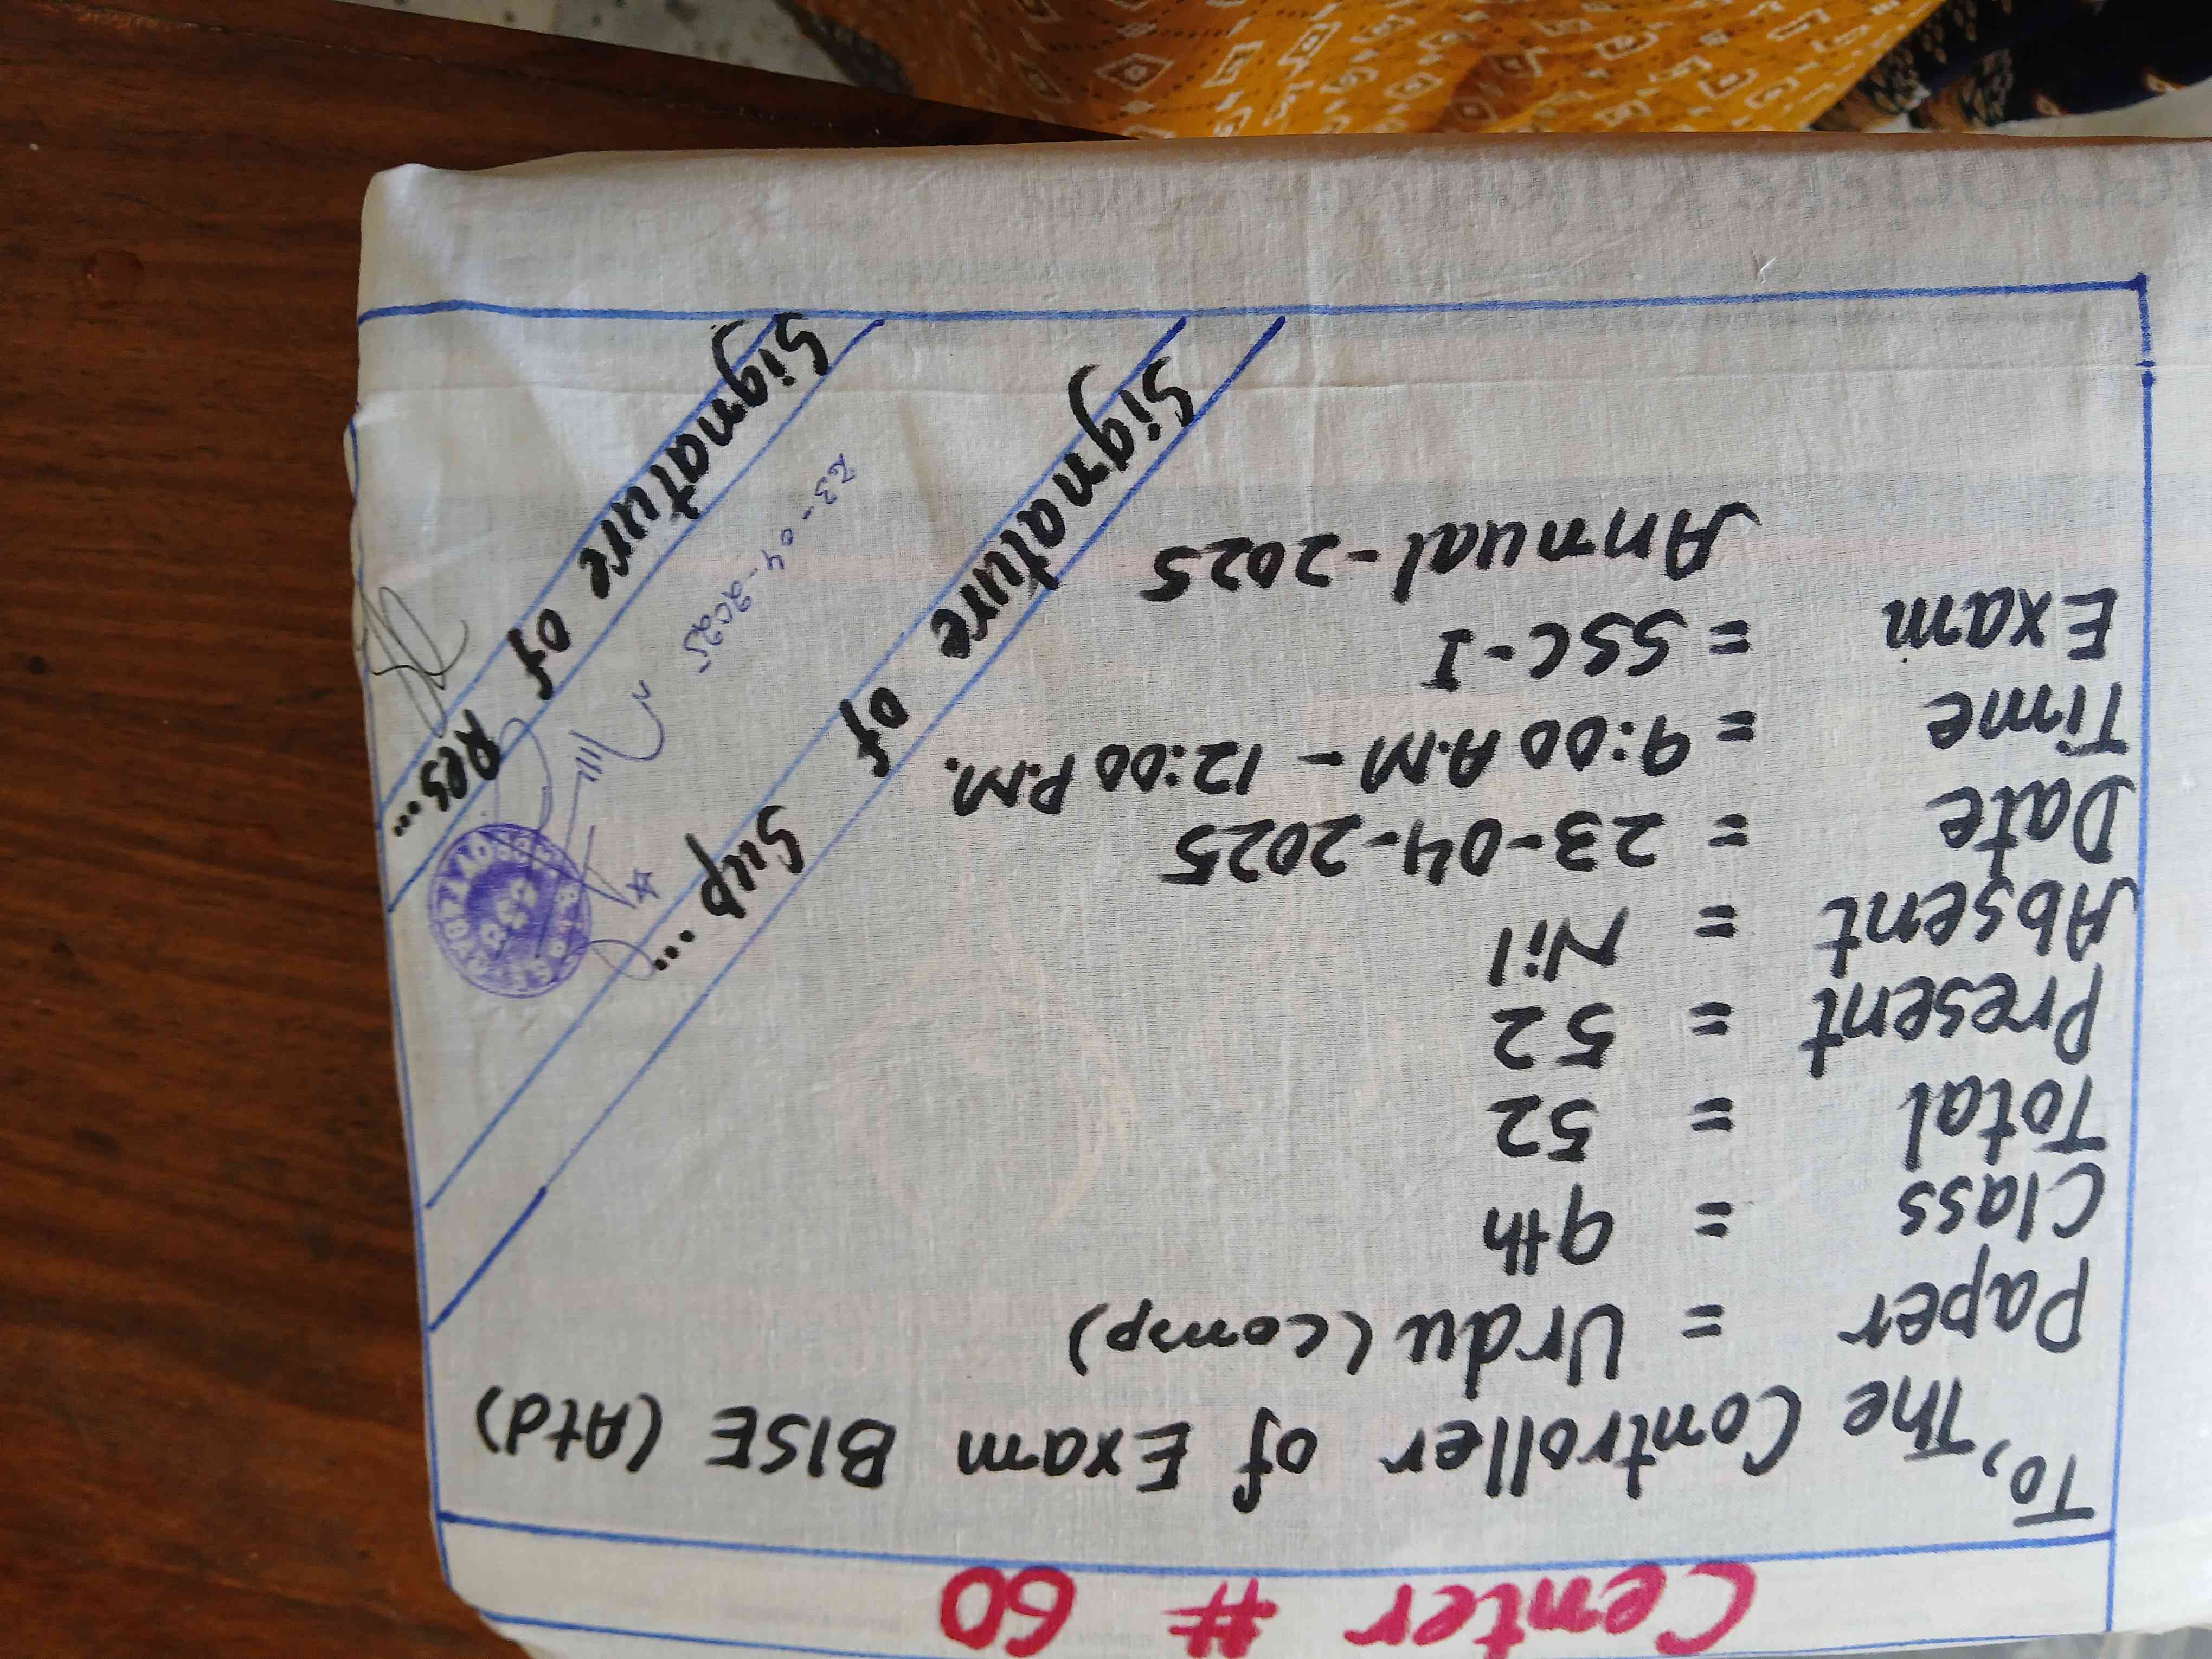 Center # 60
To, The Controller of Exam BISE (Atd)
Paper = Urdu (comp)
Class = 9th
Total = 52
Present = 52
Absent = Nil
Date = 23-04-2025
Time = 9:00 A.M - 12:00 P.M.
Exam = SSC-I
Annual-2025
Signature of Sup...
23-04-2025
Signature of Res...